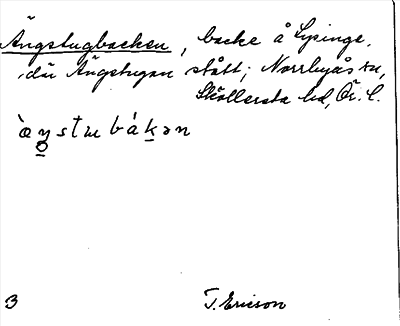 Ängstugbacken, backe å Lysinge,
där Ängstugan stått; Norrbyås sn,
Sköllersta hd, Ör. l.
3 T. Ericson